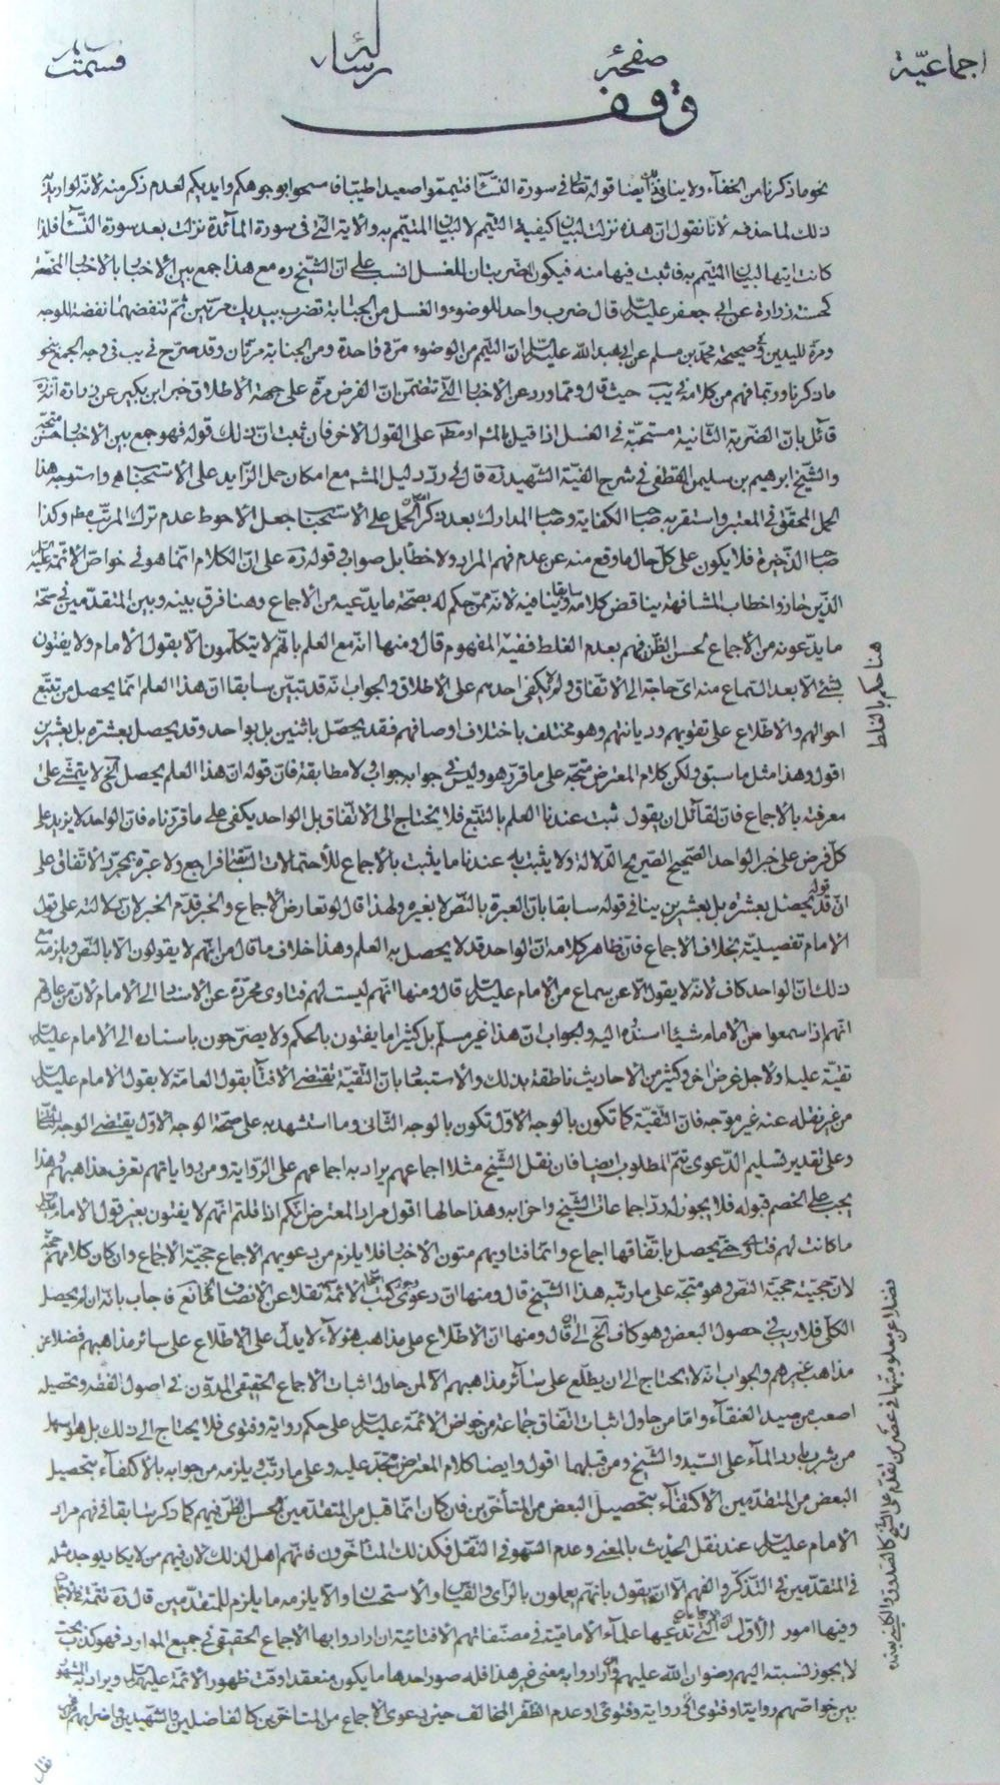 اجماعيّة صفحة رسالة قسمت
وقف
نحو ما ذكرنا من الخفاء ولا ينافي ايضا قوله تعالى في سورة النساء فتيمّموا صعيدا طيّبا فامسحوا بوجوهكم وايديكم لعدم ذكر منه لانه لو اريد
ذلك لما حذفه لانّا نقول انّ هذه نزلت لبيان كيفية التيمّم لا لبيان المتيمّم به والاية الّتي في سورة المائدة نزلت بعد سورة النساء فلذا
كانت ايتها لبيان المتيمّم به فاثبت فيها منه فيكون الضربتان للغسل انسب على انّ الشيخ ره مع هذا جمع بين الاخبار بالاخبار
زرارة عن ابي جعفر عليه السلام قال ضرب واحد للوضوء والغسل من الجنابة تضرب بيديك مرّتين ثمّ تنفضهما نفضة للوجه
ومرّة لليدين وصحيحة محمّد بن مسلم عن ابي عبد الله عليه السلام انّ التيمّم من الوضوء مرّة واحدة ومن الجنابة مرّتان وقد صرّح في يب في وجه الجمع بنحو
ما ذكرنا وربّما فهم من كلامه في يب حيث قال وممّا ورد عن الاخبار الّتي تتضمّن انّ الفرض مرّة على جهة الاطلاق خبر ابن بكير عن زرارة انّه
قائل بانّ الضربة الثانية مستحبّة في الغسل اذا قيل على القول الاخر فان ثبت انّ ذلك قوله فهو جمع بين الاخبار
والشيخ ابرهيم بن سليمن القطيفي في شرح الفية الشهيد ره قال في ردّ دليل المشهور مع امكان حمل الزايد على الاستحباب واستوجه هذا
الحمل المحقق في المعتبر واستقربه صاحب الكفاية وصاحب المدارك بعد ذكر الحمل على الاستحباب جعل الاحوط عدم ترك المرتين وكذا
صاحب الذخيرة فلا يكون على كلّ حال ما وقع منه عن عدم فهم المراد ولا خطأ بل صواب وقوله ره على انّ الكلام انّما هو في خواصّ الائمة
الذين حازوا خطاب المشافهة يناقض كلامه سابقا وينافيه لانه ممّن حكم له بصحّة ما يدّعيه من الاجماع وهنا فرق بينه وبين المتقدّمين في صحّة
ما يدّعونه من الاجماع لحسن الظنّ فيهم بعدم الغلط ففيه المفهوم قال ومنها انّه مع العلم بانّهم لا يتكلّمون الّا بقول الامام ولا يفتون
بشئ الّا بعد السماع منه ايّ حاجة الى الاتفاق ولم يكفي احدهم على الاطلاق والجواب انّه قد تبيّن سابقا انّ هذا العلم انّما يحصل من تتبّع
احوالهم والاطّلاع على تقويهم وديانتهم وهو مختلف باختلاف اوصافهم فقد يحصل باثنين بل بواحد وقد يحصل بعشرة بل بعشرين
اقول وهذا مثل ما سبق ولكن كلام المعترض متّجه على ما قرّره هو وليس في جوابه جواب ولا مطابقة فانّ قوله انّ هذا العلم يحصل الخ لا يتمشّى على
معرفته بالاجماع فانّ لقائل ان يقول ثبت عندنا العلم بالتتبّع فلا يحتاج الى الاتفاق بل الواحد يكفي على ما قرّرناه فانّ الواحد لا يزيد على
كلّ فرض على خبر الواحد الصحيح الصريح الدلالة ولا يثبت به عندنا ما يثبت بالاجماع للاحتمالات السابقة فراجع ولا عبرة بمجرّد الاتفاق على
انّ قوله قد يحصل بعشرة بل بعشرين ينافي قوله سابقا بانّ العبرة بالنصّ لا بغيره ولهذا قال لو تعارض الاجماع والخبر قدّم الخبر لانّ دلالته على قول
الامام تفصيليّة بخلاف الاجماع فانّ ظاهر كلامه انّ الواحد قد لا يحصل به العلم وهذا خلاف ما قال من انّهم لا يقولون الّا بالنصّ ويلزمه مع
ذلك انّ الواحد كاف لانّه لا يقول الّا عن سماع من الامام عليه السلام قال ومنها انّهم ليست لهم فتاوى مجرّدة عن الاسناد الى الامام لانّ من عادتهم
انّهم اذا سمعوا من الامام شيئا اسندوه اليه والجواب انّ هذا غير مسلّم بل كثيرا ما يفتون بالحكم ولا يصرّحون باسناده الى الامام عليه السلام
تقيّة عليه او لاجل غرض اخر وكثير من الاحاديث ناطقة بذلك والاستبعاد بانّ التقيّة تقتضي الافتاء بقول العامّة لا بقول الامام عليه السلام
من غير نقله عنه غير موجّه فانّ التقيّة كما تكون بالوجه الاوّل تكون بالوجه الثاني وما استشهد به على صحّة الوجه الاوّل يقتضي الوجه الثاني
وعلى تقدير تسليم الدّعوى تمّ المطلوب ايضا فان نقل الشيخ مثلا اجماعهم يراد به اجماعهم على الرّواية ومن رواياتهم تعرف مذاهبهم وهذا
يجب على الخصم قبوله فلا يجوز له ردّ اجماعات الشيخ واحزابه وهذا حالها اقول مراد المعترض انّكم اذا قلتم انّهم لا يفتون بغير قول الامام
ما كانت لهم فتاوى حتّى يحصل باتّفاقها اجماع وانّما فتاويهم متون الاخبار فلا يلزم من دعويهم الاجماع حجيّة الاجماع وان كان كلامهم حجّة
لانّ حجيّته حجيّة النصّ وهو متّجه على ما رتّبه هذا الشيخ قال ومنها انّ دعوى كتب الائمّة نقلا عن الانصاف فاجاب بانّه ان لم يحصل
الكلّ فلا ريب في حصول البعض وهو كاف الخ الى ان قال ومنها انّ الاطّلاع على مذاهب هؤلاء لا يدلّ على الاطّلاع على سائر مذاهبهم فضلا عن
مذاهب غيرهم والجواب انّه لا يحتاج الى ان يطّلع على سائر مذاهبهم الّا لمن حاول اثبات الاجماع الحقيقي المدوّن في اصول الفقه وتحصيله
اصعب من صيد العنقاء وامّا من حاول اثبات اتّفاق جماعة من خواصّ الائمّة عليهم السلام على حكم رواية وفتوى فلا يحتاج الى ذلك بل هو اسهل
من شرب بارد الماء على السيّد والشيخ ومن قبلهما اقول وايضا كلام المعترض متّجه عليه وعلى ما رتّب ويلزمه من جوابه بالاكتفاء بتحصيل
البعض من المتقدّمين الاكتفاء بتحصيل البعض من المتأخّرين فان كان انّما قبل من المتقدّمين لحسن الظنّ فيهم كما ذكر سابقا في فهم مراد
الامام عليه السلام عند نقل الحديث بالمعنى وعدم السهو في النقل فكذلك المتأخّرون فانّهم اهل لذلك لانّ فيهم من لا يكاد يوجد مثله
في المتقدّمين في التذكّر والفهم الّا ان يقول بانّهم يعملون بالرأي والقياس والاستحسان والّا يلزمه ما يلزم للمتقدّمين قال ره تتمّة
وفيها امور الأوّل انّ الاجماعات الّتي تدّعيها علماء الاماميّة في مصنّفاتهم الافتائية ان ارادوا بها الاجماع الحقيقي في جميع الموارد فهو كذب بحت
لا يجوز نسبته اليهم رضوان الله عليهم وان ارادوا به معنى غير هذا فله صور احدها ما يكون منعقدا وقت ظهور الائمّة عليهم السلام ويراد به المشهور
بين خواصّهم رواية او فتوى او رواية وفتوى او عدم الظفر بالمخالف حين دعوى الاجماع من المتأخرين كالفاضلين والشهيدين واضرابهم
هنا حكم بالغلط
فضلا عن معلوميتها في عصر من تقدّم على الشيخ كالصدوق والكليني وبعده